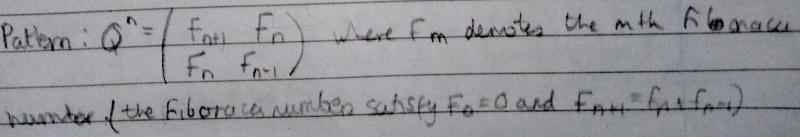 Pattern: Qⁿ = ( Fn+1 Fn where Fm denotes the mth Fibonacci
Fn Fn-1 )
number (the Fibonacci number satisfy F0 = 0 and Fn+1 = Fn + Fn-1)